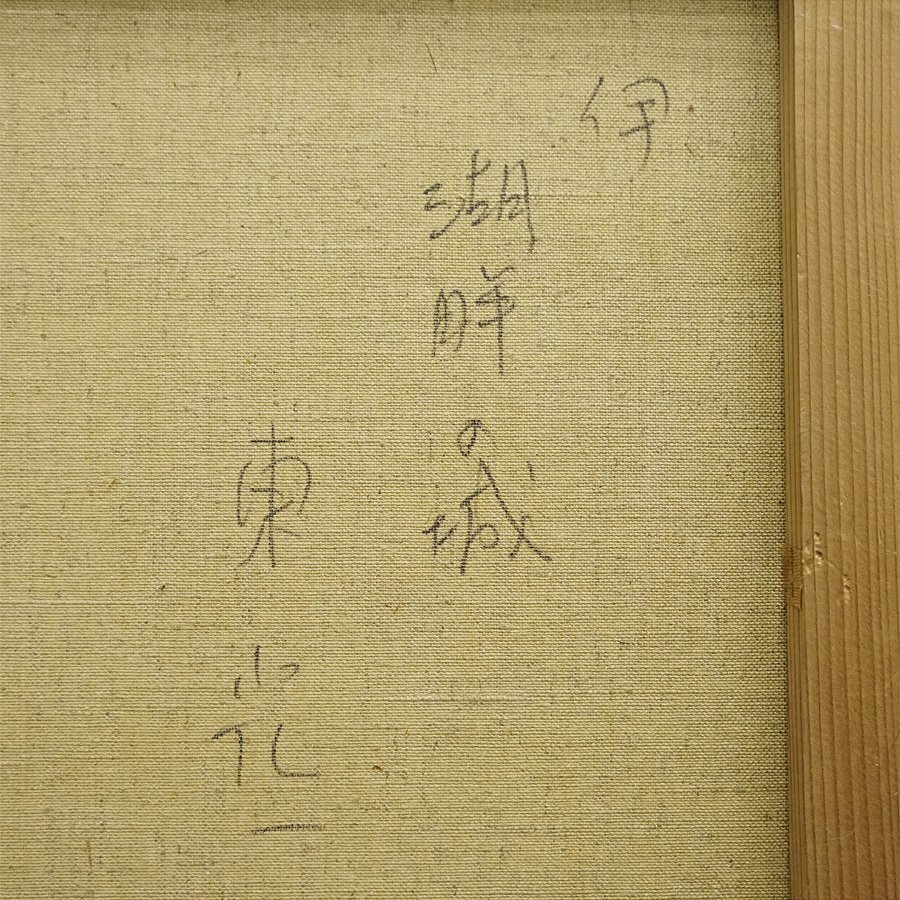 伊
湖畔の城
東 一